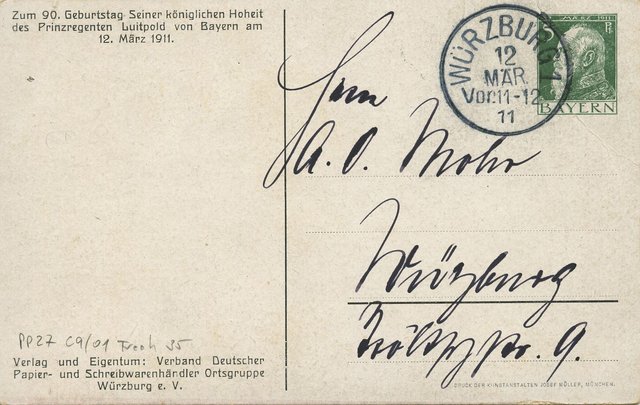 Zum 90. Geburtstag Seiner königlichen Hoheit
des Prinzregenten Luitpold von Bayern am
12. März 1911.
WÜRZBURG 1
12
MÄR.
Vor.11-12
11
BAYERN
Herrn
A. O. Mohr
Würzburg
str. 9.
PP27 C9/01
Verlag und Eigentum: Verband Deutscher
Papier- und Schreibwarenhändler Ortsgruppe
Würzburg e. V.
DRUCK DER KUNSTANSTALTEN JOSEF MÜLLER, MÜNCHEN.